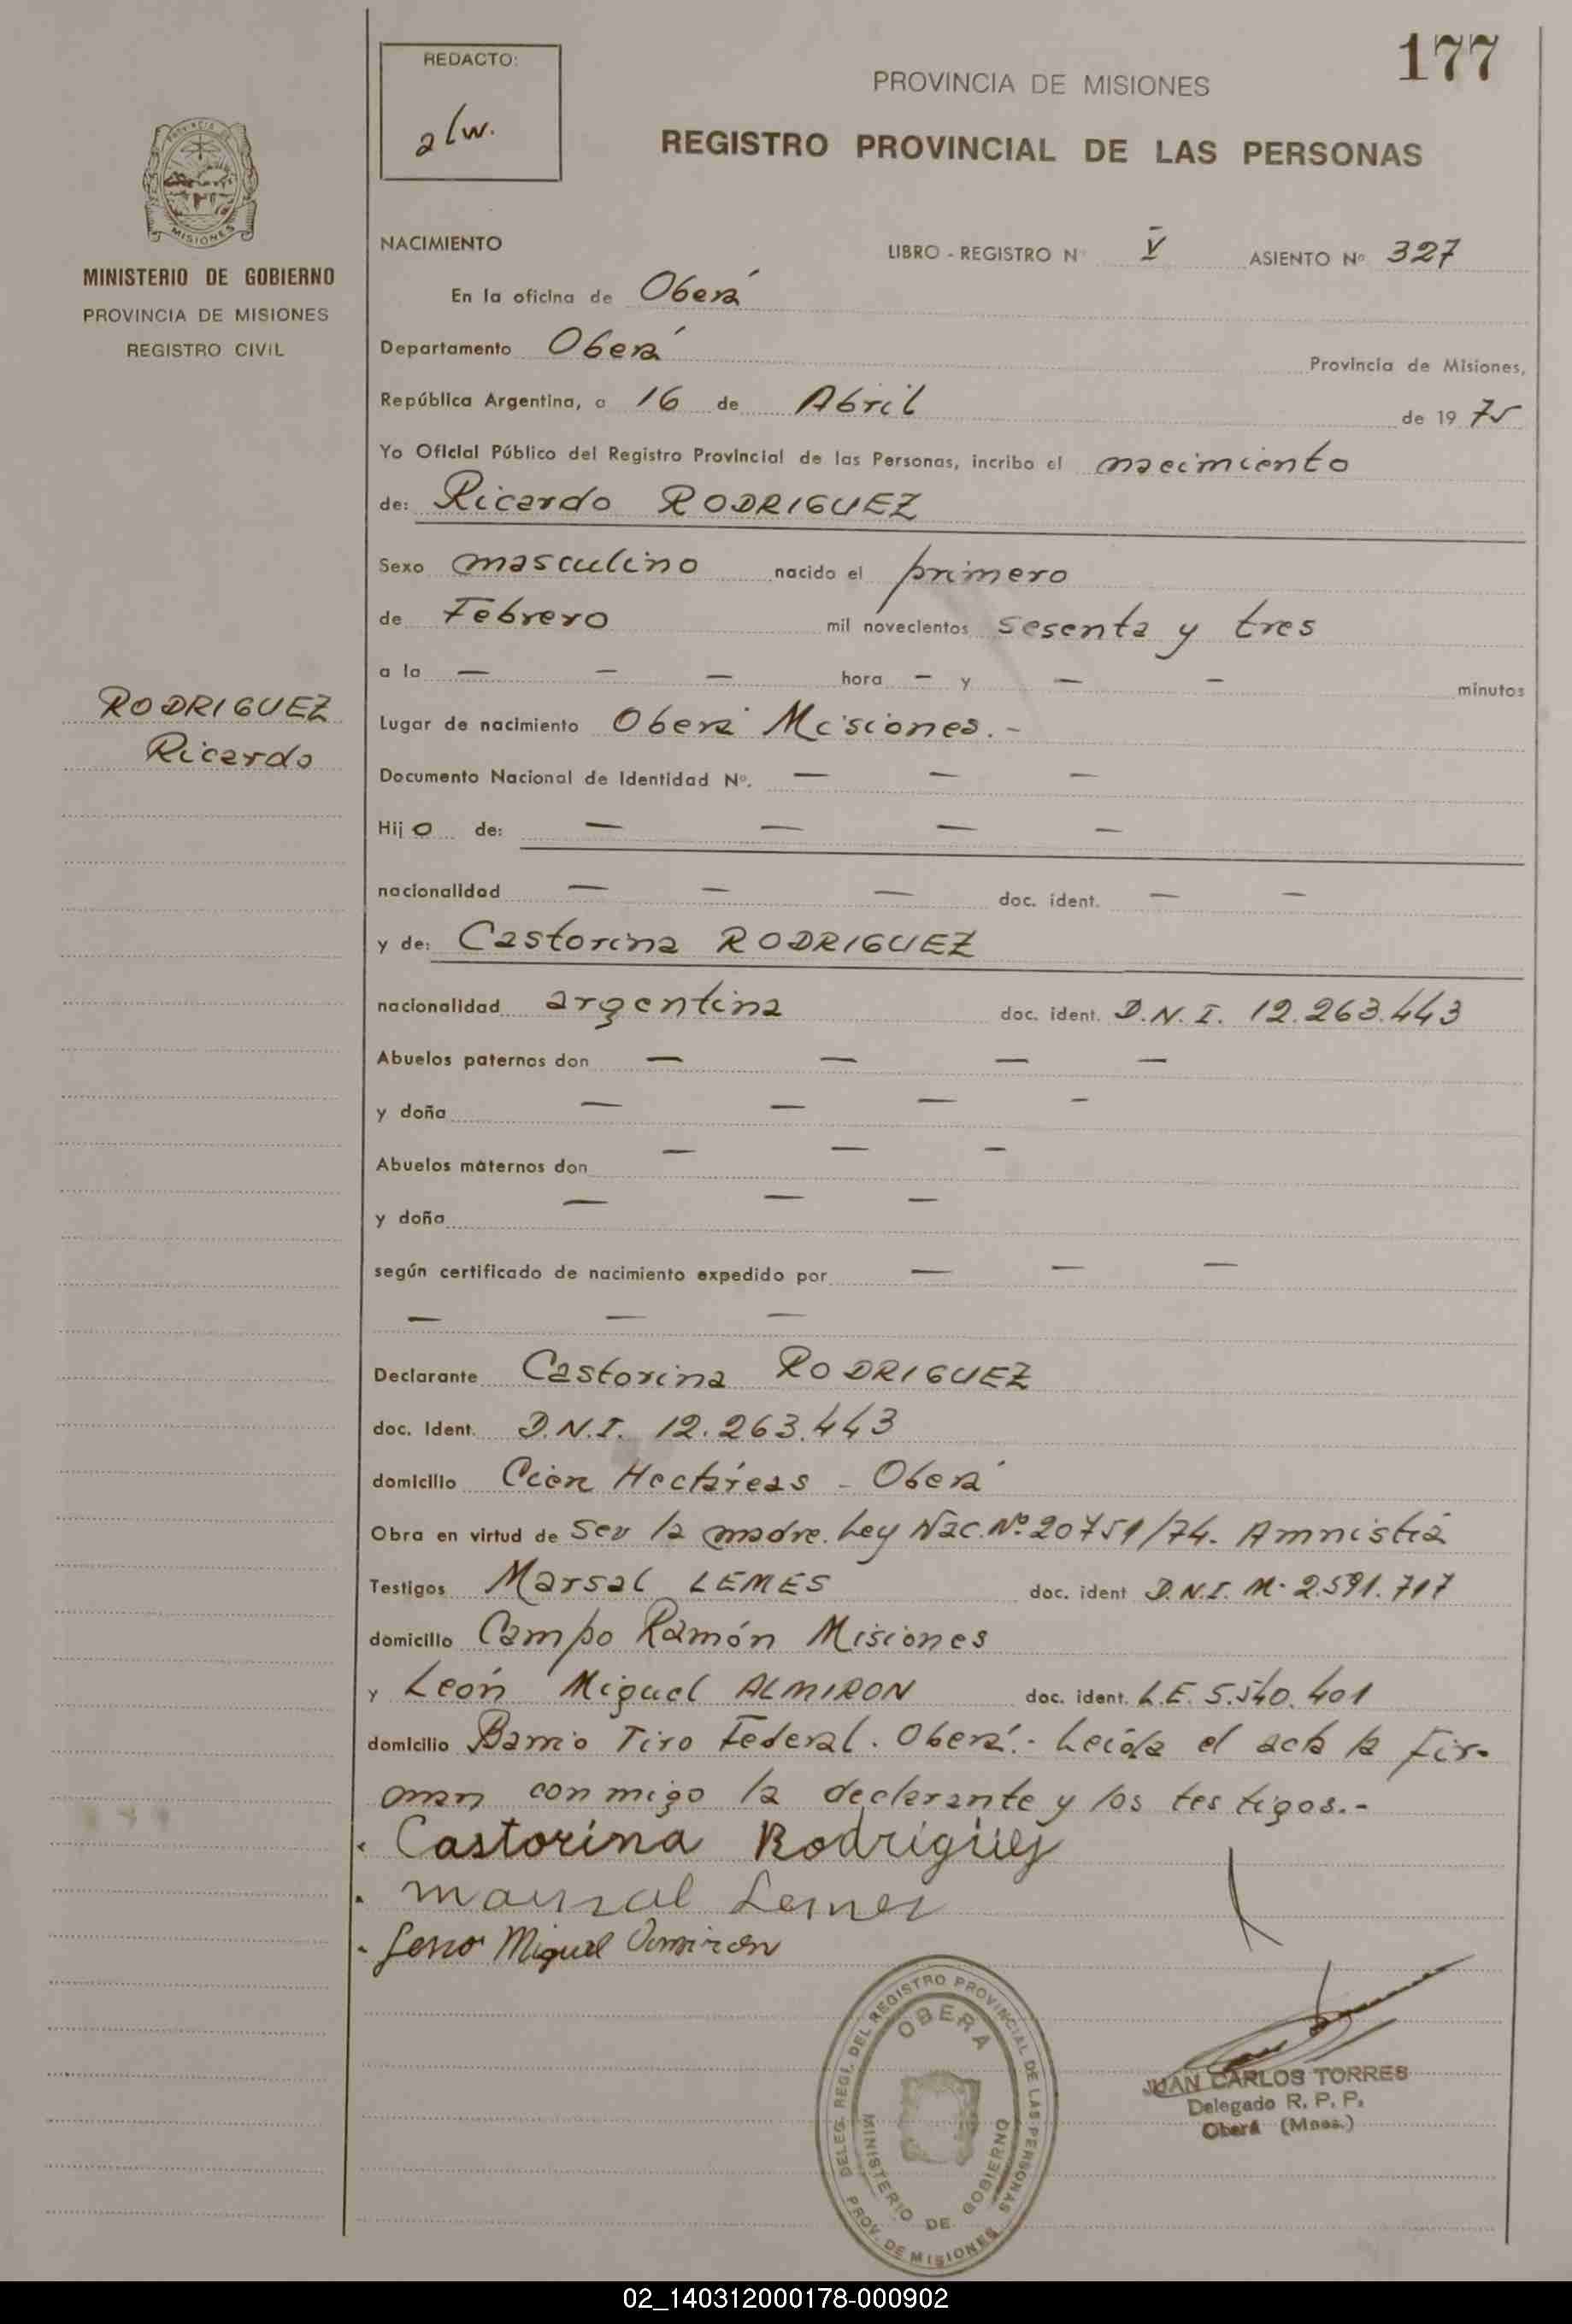 177
REDACTO:
alw.
PROVINCIA DE MISIONES
REGISTRO PROVINCIAL DE LAS PERSONAS
PROVINCIA DE
MISIONES
MINISTERIO DE GOBIERNO
PROVINCIA DE MISIONES
REGISTRO CIVIL
NACIMIENTO LIBRO - REGISTRO Nº V ASIENTO Nº 327
En la oficina de Oberá
Departamento Oberá Provincia de Misiones,
República Argentina, a 16 de Abril de 1975
Yo Oficial Público del Registro Provincial de las Personas, incribo el nacimiento
de: Ricardo RODRIGUEZ
Sexo masculino nacido el primero
de Febrero mil novecientos sesenta y tres
a la — — — hora — y — — minutos
RODRIGUEZ
Ricardo
Lugar de nacimiento Oberá Misiones.-
Documento Nacional de Identidad Nº. — — —
Hijo de: — — — —
nacionalidad — — — doc. ident. — —
y de: Castorina RODRIGUEZ
nacionalidad argentina doc. ident. D.N.I. 12.263.443
Abuelos paternos don — — — —
y doña — — — —
Abuelos maternos don — — —
y doña — — —
según certificado de nacimiento expedido por — — —
— — —
Declarante Castorina RODRIGUEZ
doc. Ident. D.N.I. 12.263.443
domicilio Cien Hectáreas - Oberá
Obra en virtud de ser la madre. Ley Nac. Nº 20751/74. Amnistía
Testigos Marsal LEMES doc. ident D.N.I. M. 2.591.717
domicilio Campo Ramón Misiones
y León Miguel ALMIRON doc. ident. L.E. 5.540.401
domicilio Barrio Tiro Federal. Oberá.- Leída el acta la fir-
man conmigo la declarante y los testigos.-
Castorina Rodrigüez
Marsal Lemes
Miguel
DELEG. REGI. DEL REGISTRO PROVINCIAL DE LAS PERSONAS
OBERA
MINISTERIO DE GOBIERNO
PROV. DE MISIONES
JUAN CARLOS TORRES
Delegado R. P. P.
Oberá (Mnes.)
02_140312000178-000902